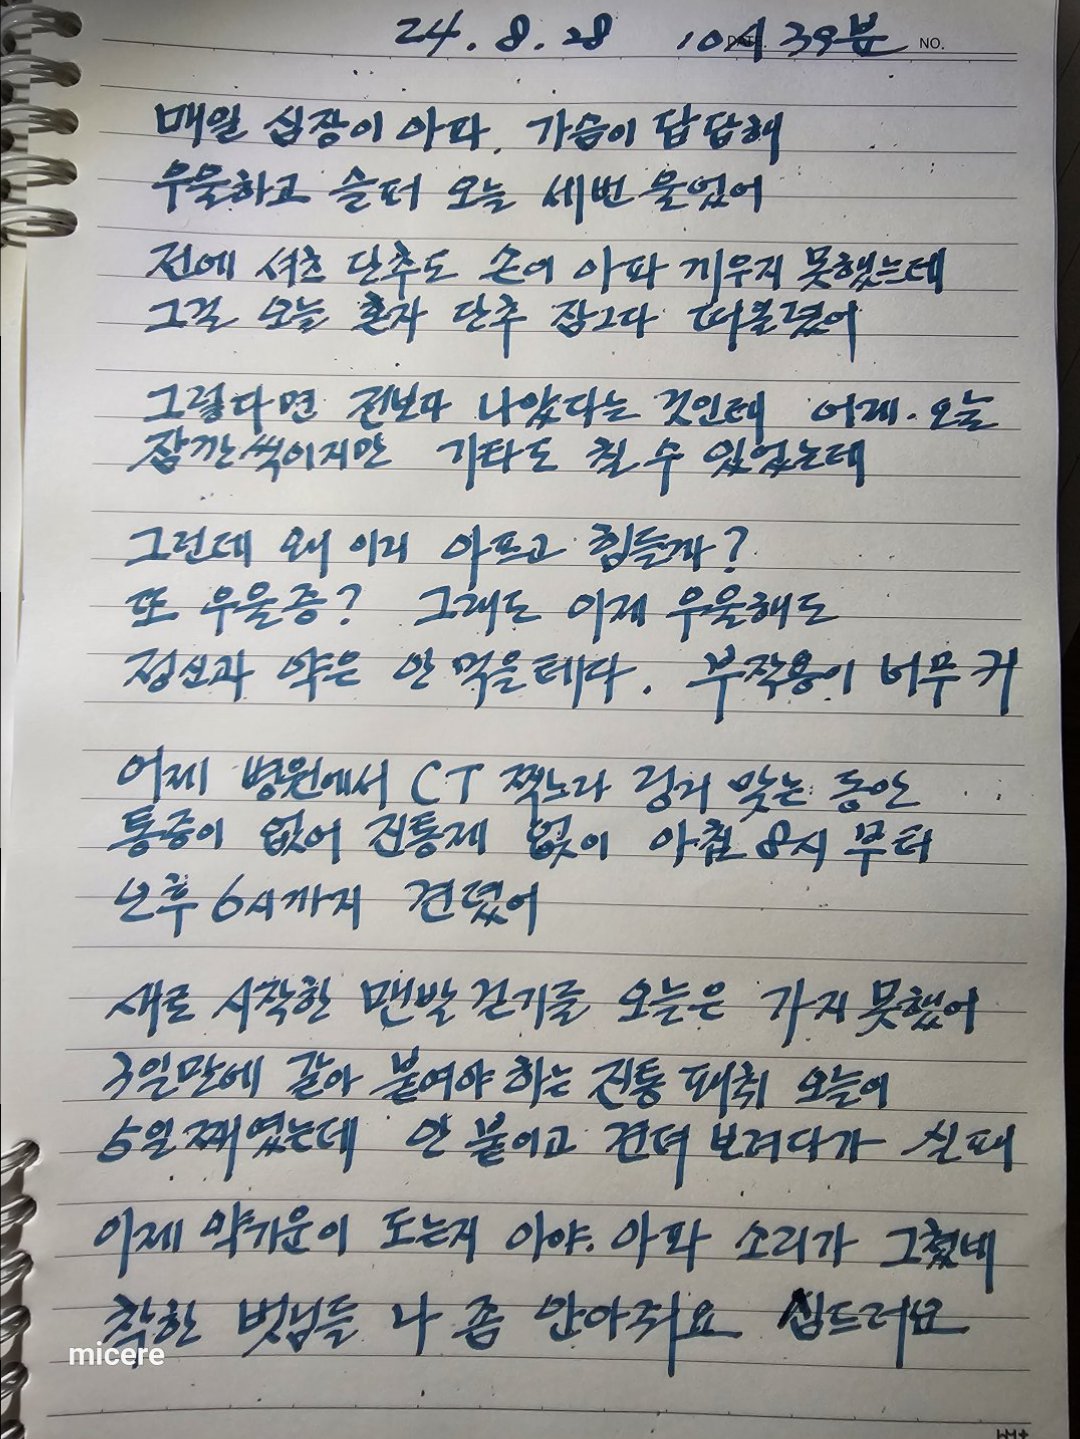 24. 8. 28 10시 39분
DATE. NO.
매일 심장이 아파. 가슴이 답답해
우울하고 슬퍼 오늘 세번 울었어
전에 셔츠 단추도 손이 아파 끼우지 못했는데
그걸 오늘 혼자 단추 잠그다 떠올렸어
그렇다면 전보다 나았다는 것인데 어제. 오늘
잠깐씩이지만 기타도 칠 수 있었는데
그런데 왜 이리 아프고 힘들까?
또 우울증? 그래도 이제 우울해도
정신과 약은 안 먹을테다. 부작용이 너무 커
어제 병원에서 CT 찍느라 링거 맞는 동안
통증이 없어 진통제 없이 아침 8시 부터
오후 6시까지 견뎠어
새로 시작한 맨발 걷기를 오늘은 가지 못했어
3일만에 갈아 붙여야 하는 진통 패취 오늘이
5일째였는데 안 붙이고 견뎌 보려다가 실패
이제 약기운이 도는지 아야. 아파 소리가 그쳤네
착한 벗님들 나 좀 안아줘요 힘드러요
micere